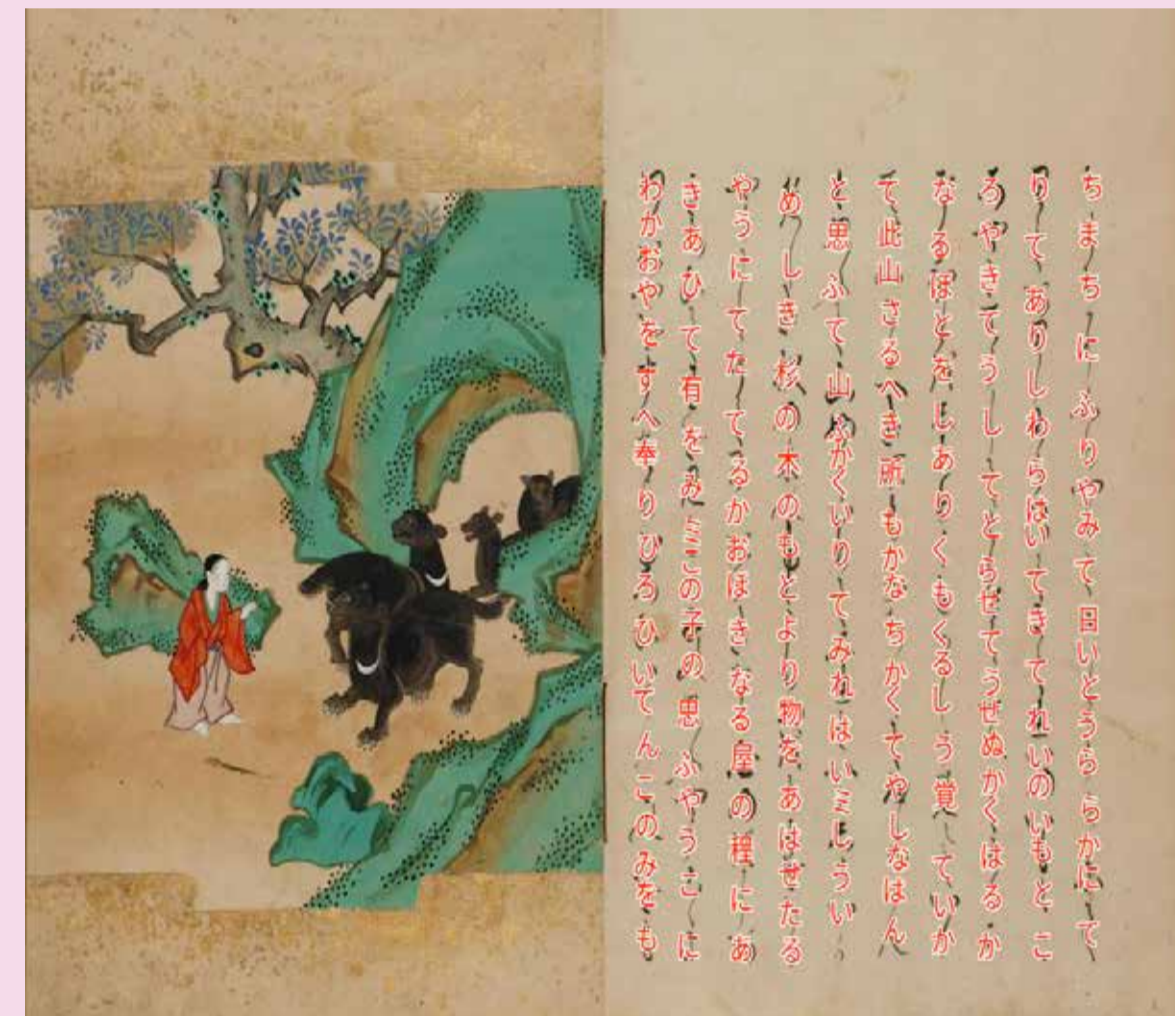 ちまちにふりやみて日いとうららかにて
りてありしわらはいてきてれいのいもとこ
ろやきてうしてとらせてうせぬかくはるか
なるほとをしありくもくるしう覚していか
て此山さるへき所もかなちかくてやしなはん
と思ふて山ふかくいりてみれはいミしうい
めしき杉の木のもとより物をあはせたる
やうにてたてるかおほきなる屋の程にあ
きあひて有をみミこの子の思ふやうこに
わかおやをすへ奉りひろひいてんこのみをも